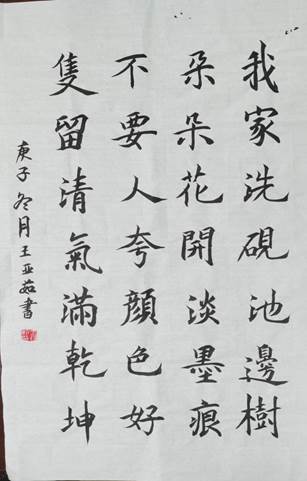 我家洗硯池邊樹
朵朵花開淡墨痕
不要人夸顔色好
隻留清氣滿乾坤
庚子冬月王亚茹書